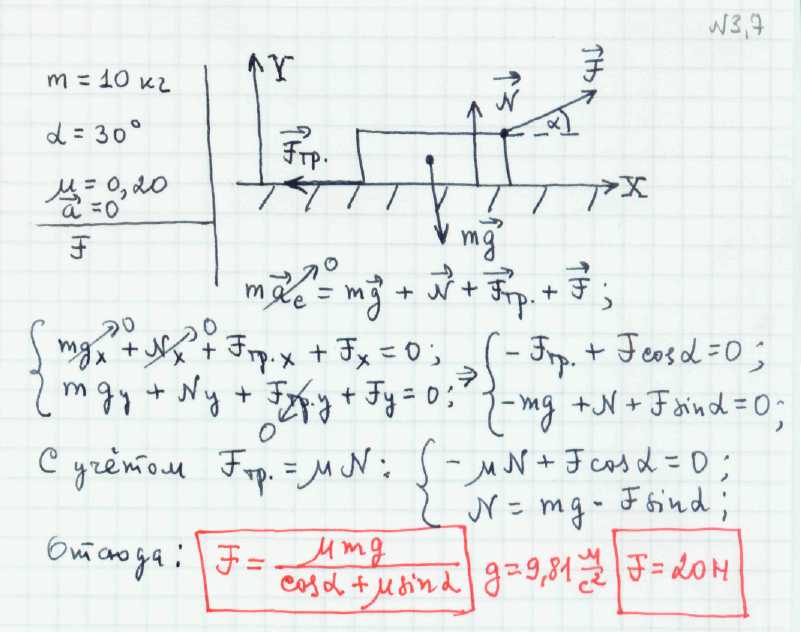 N3,7
m = 10 кг
α = 30°
μ = 0,20
a⃗ = 0
F
Y
N⃗
F⃗
α
F⃗тр.
X
mg⃗
0
ma⃗c = mg⃗ + N⃗ + F⃗тр. + F⃗ ;
0 0
mgx + Nx + Fтр.x + Fx = 0 ; ⇒ - Fтр. + Fcosα = 0 ;
mgy + Ny + Fтр.y + Fy = 0 ; -mg + N + Fsinα = 0 ;
0
С учётом Fтр. = μN : - μN + Fcosα = 0 ;
N = mg - Fsinα ;
Отсюда : F = μmg / (cosα + μsinα) g = 9,81 м/с² F = 20 Н